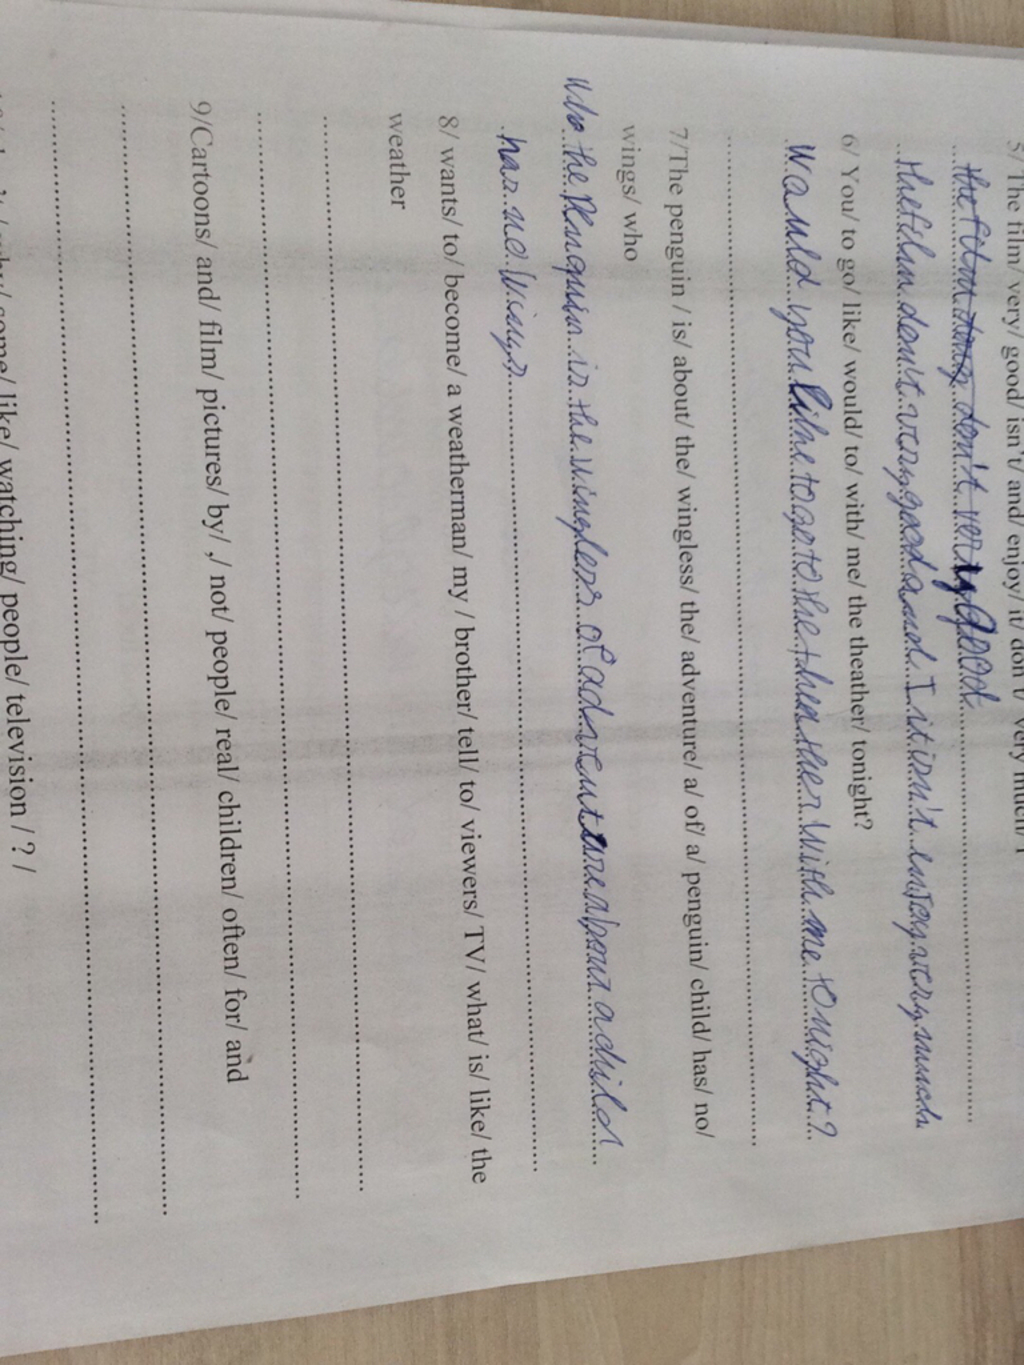 5/ The film/ very/ good/ isn't/ and/ enjoy/ it/ don't/ very much/ I
don't very good
the film don't very good and I it isn't enjoy very much
6/ You/ to go/ like/ would/ to/ with/ me/ the theather/ tonight?
Would you like to go to the theather with me tonight?
7/The penguin / is/ about/ the/ wingless/ the/ adventure/ a/ of/ a/ penguin/ child/ has/ no/
wings/ who
Who the Penguin is the wingless of adventure about a child
has no wings
8/ wants/ to/ become/ a weatherman/ my / brother/ tell/ to/ viewers/ TV/ what/ is/ like/ the
weather
9/Cartoons/ and/ film/ pictures/ by/ ,/ not/ people/ real/ children/ often/ for/ and
some/ like/ watching/ people/ television / ? /